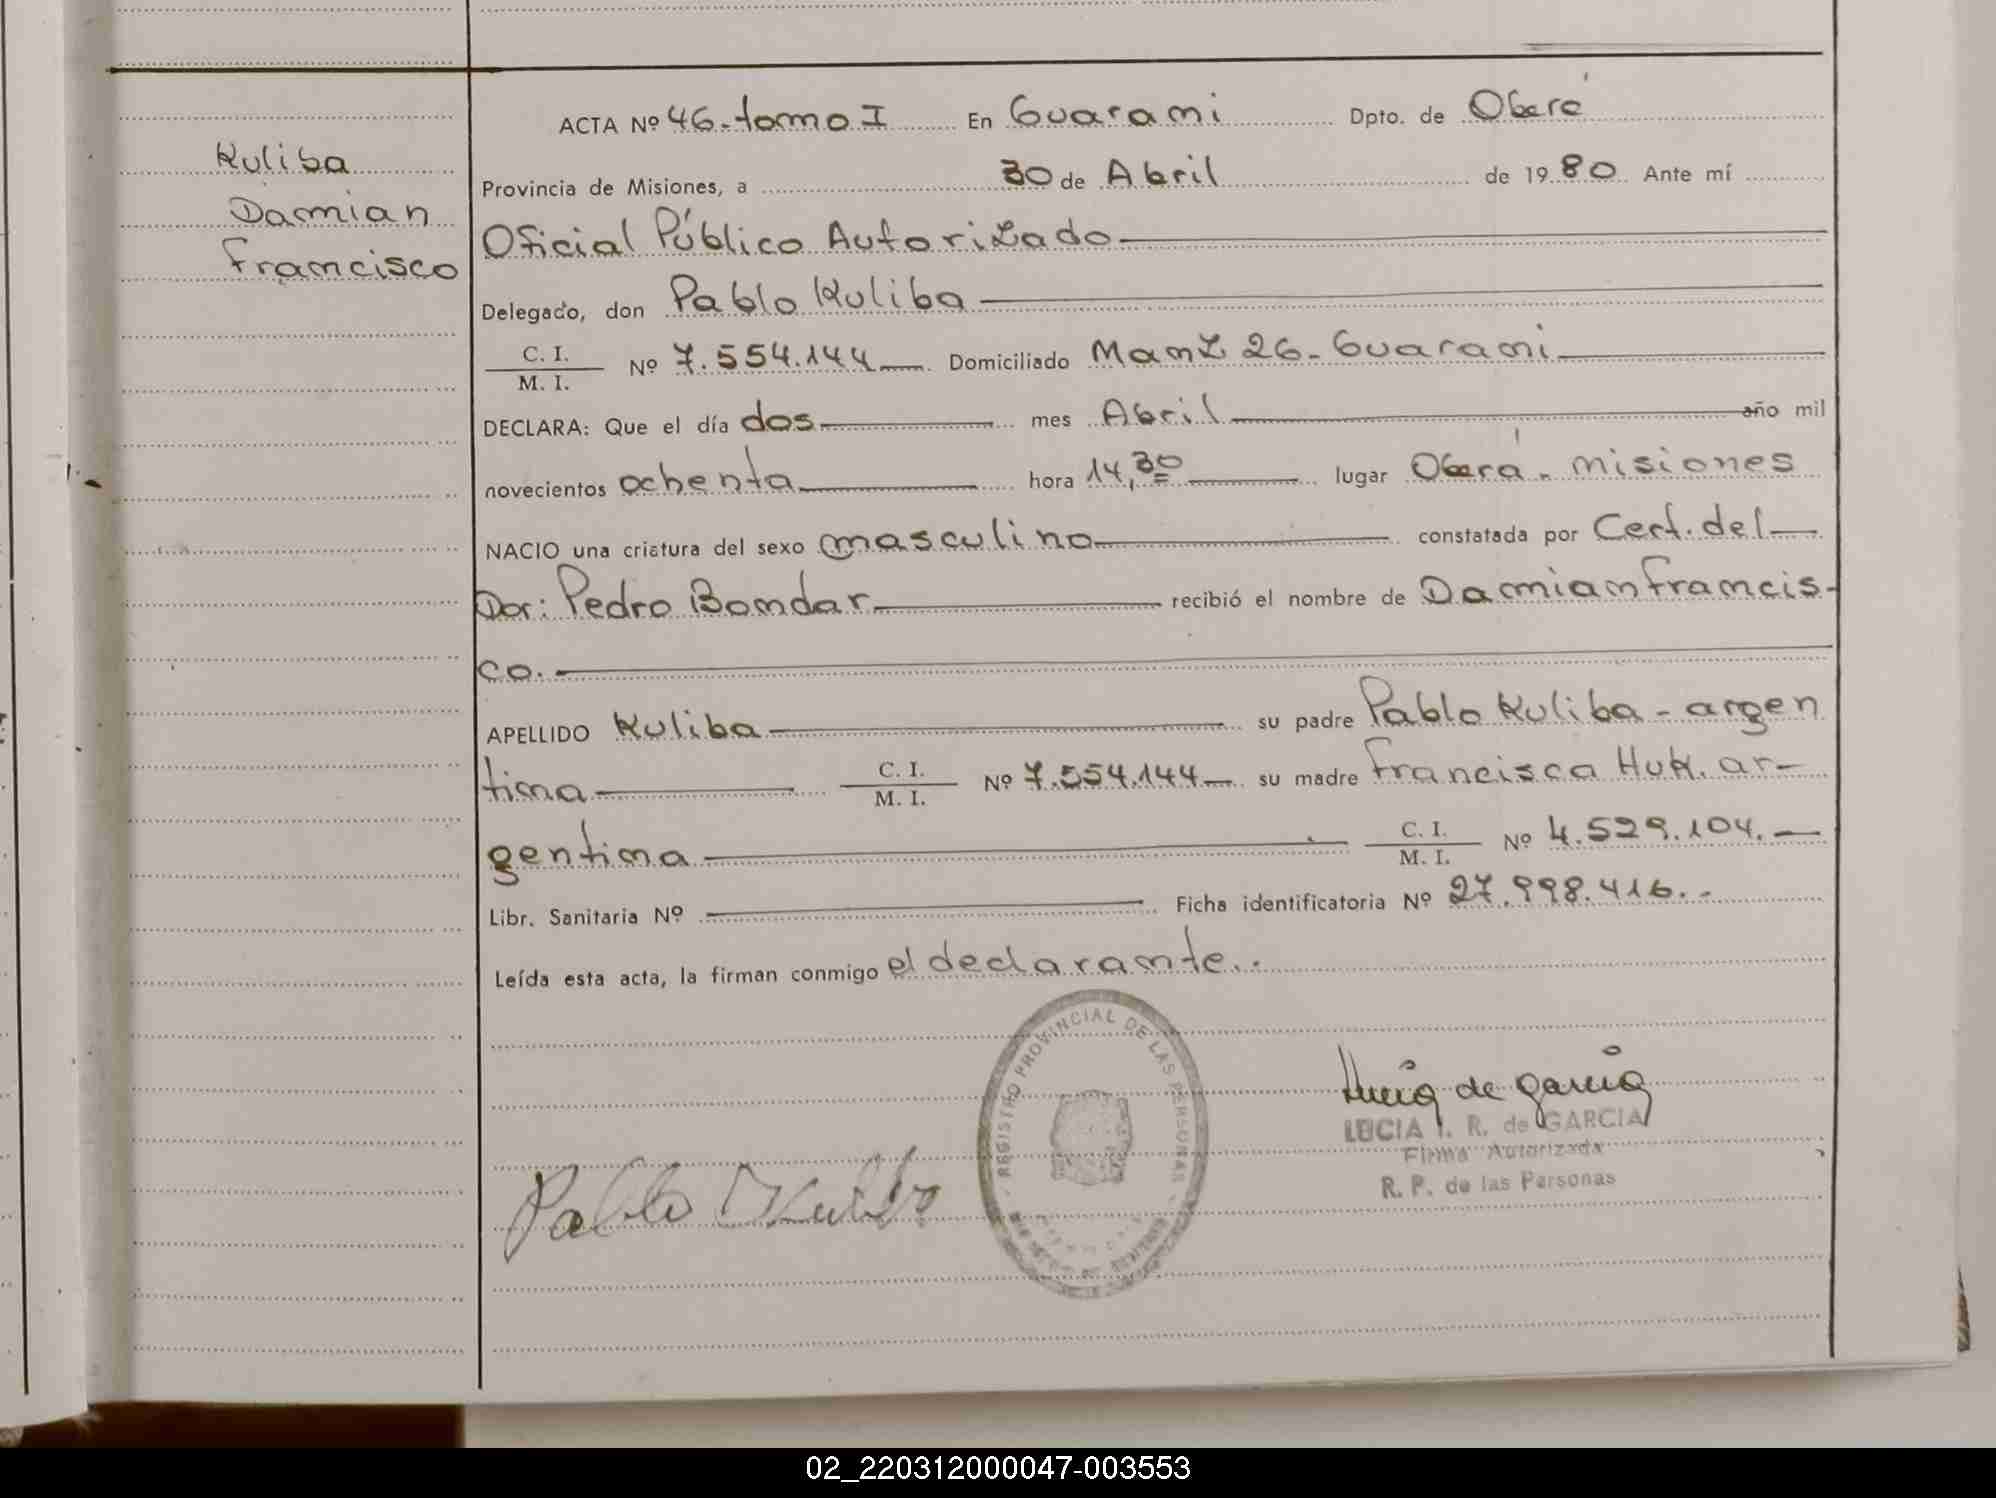 Kuliba
Damian
Francisco
ACTA Nº 46-tomo I En Guarani Dpto. de Oberá
Provincia de Misiones, a 30 de Abril de 1980 Ante mí
Oficial Público Autorizado
Delegado, don Pablo Kuliba
C. I.
M. I. Nº 7.554.144 Domiciliado Manz 26-Guarani
DECLARA: Que el día dos mes Abril año mil
novecientos ochenta hora 14,30 lugar Oberá - misiones
NACIO una criatura del sexo masculino constatada por Cert. del
Dor: Pedro Bondar recibió el nombre de Damian Francis-
co.
APELLIDO Kuliba su padre Pablo Kuliba - argen
tina C. I.
M. I. Nº 7.554.144 su madre Francisca Huk. ar-
gentina C. I.
M. I. Nº 4.529.104.
Libr. Sanitaria Nº Ficha identificatoria Nº 27.998.416.-
Leída esta acta, la firman conmigo el declarante..
REGISTRO PROVINCIAL DE LAS PERSONAS
Lucia de Garcia
LUCIA I. R. de GARCIA
Firma Autorizada
R. P. de las Personas
Pablo Kuliba
02_220312000047-003553